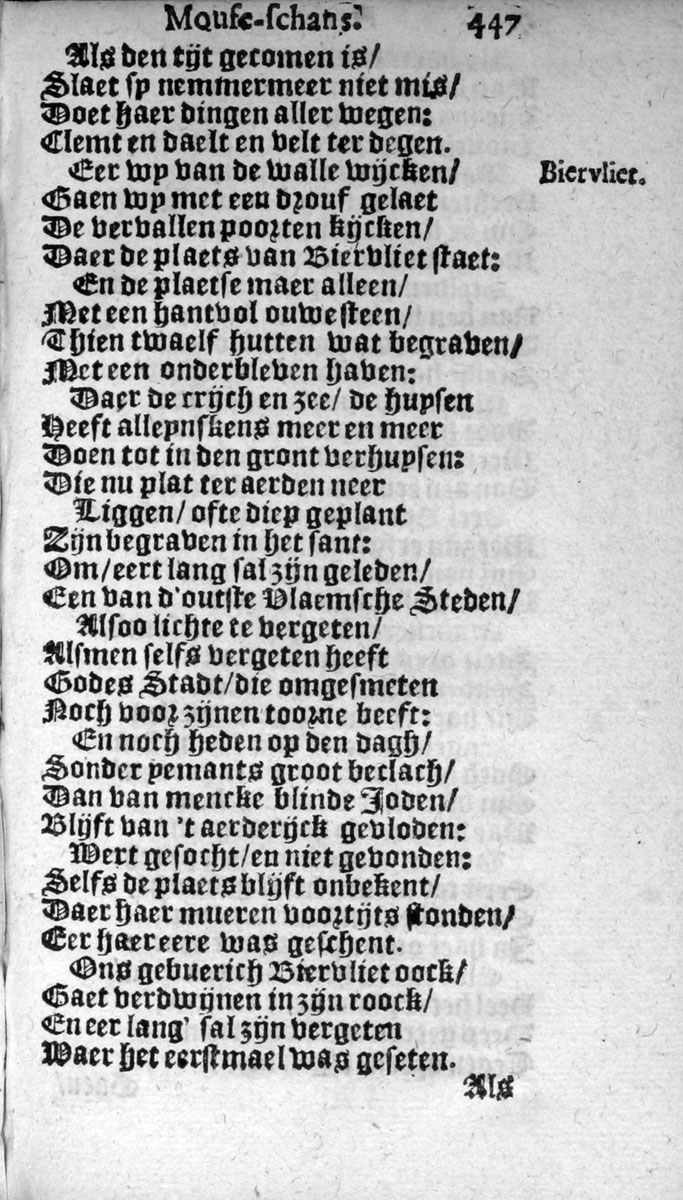 Moufe-schans. 447
Als den tijt gecomen is/
Slaet sy nemmermeer niet mis/
Doet haer dingen aller wegen:
Clemt en daelt en velt ter degen.
Eer wy van de walle wijcken/ Biervliet.
Gaen wy met een drouf gelaet
De vervallen poorten kijcken/
Daer de plaets van Biervliet staet:
En de plaetse maer alleen/
Met een hantvol ouwe steen/
Thien twaelf hutten wat begraven/
Met een onderbleven haven:
Daer de crijch en zee/ de huysen
Heeft alleynskens meer en meer
Doen tot in den gront verhuysen:
Die nu plat ter aerden neer
Liggen/ ofte diep geplant
Zijn begraven in het sant:
Om/ eert lang sal zijn geleden/
Een van d'outste Vlaemsche Steden/
Alsoo lichte te vergeten/
Alsmen selfs vergeten heeft
Godes Stadt/ die omgesmeten
Noch voor zijnen toorne beeft:
En noch heden op den dagh/
Sonder yemants groot beclach/
Dan van mencke blinde Joden/
Blijft van 't aerderijck gevloden:
Wert gesocht/ en niet gevonden:
Selfs de plaets blijft onbekent/
Daer haer mueren voortijts stonden/
Eer haer eere was geschent.
Ons gebuerich Biervliet oock/
Gaet verdwijnen in zijn roock/
En eer lang' sal zijn vergeten
Waer het eerstmael was geseten.
Als